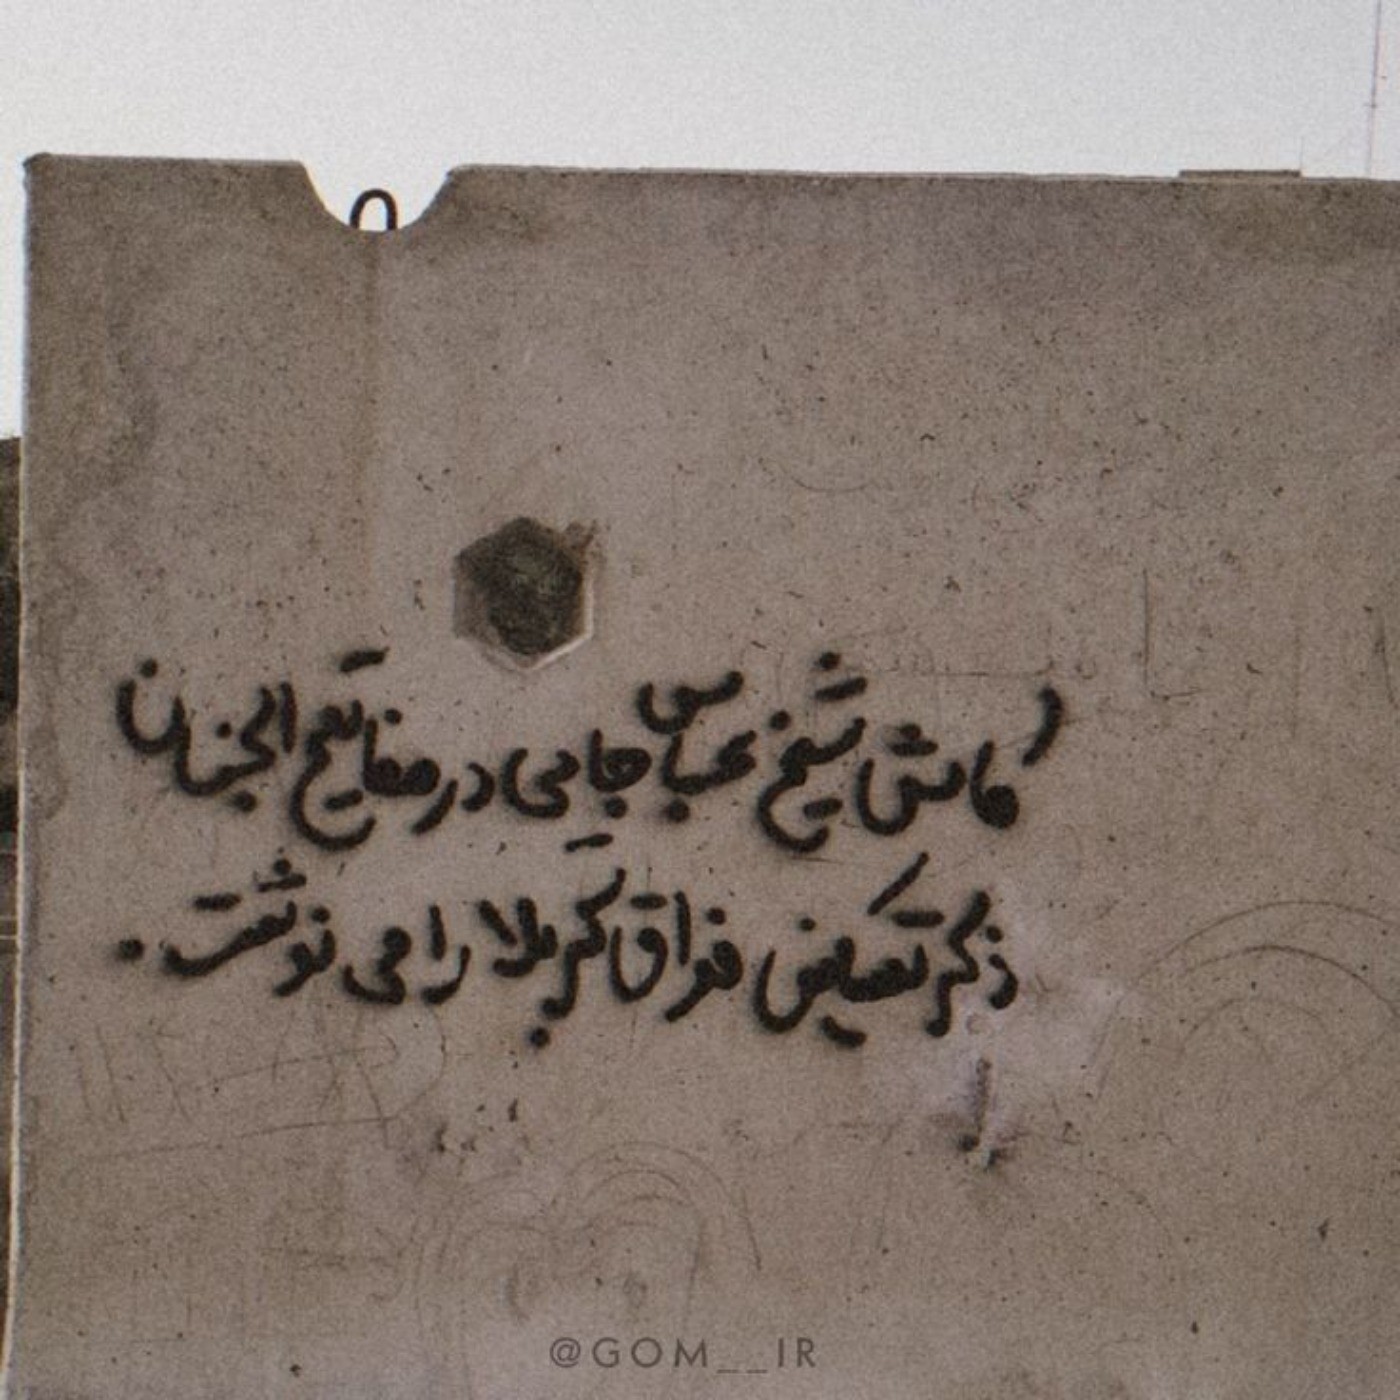 کاش شیخ عباس جایی در مفاتیح الجنان
ذکر تسکین فراق کربلا را می نوشت.
@GOM__IR